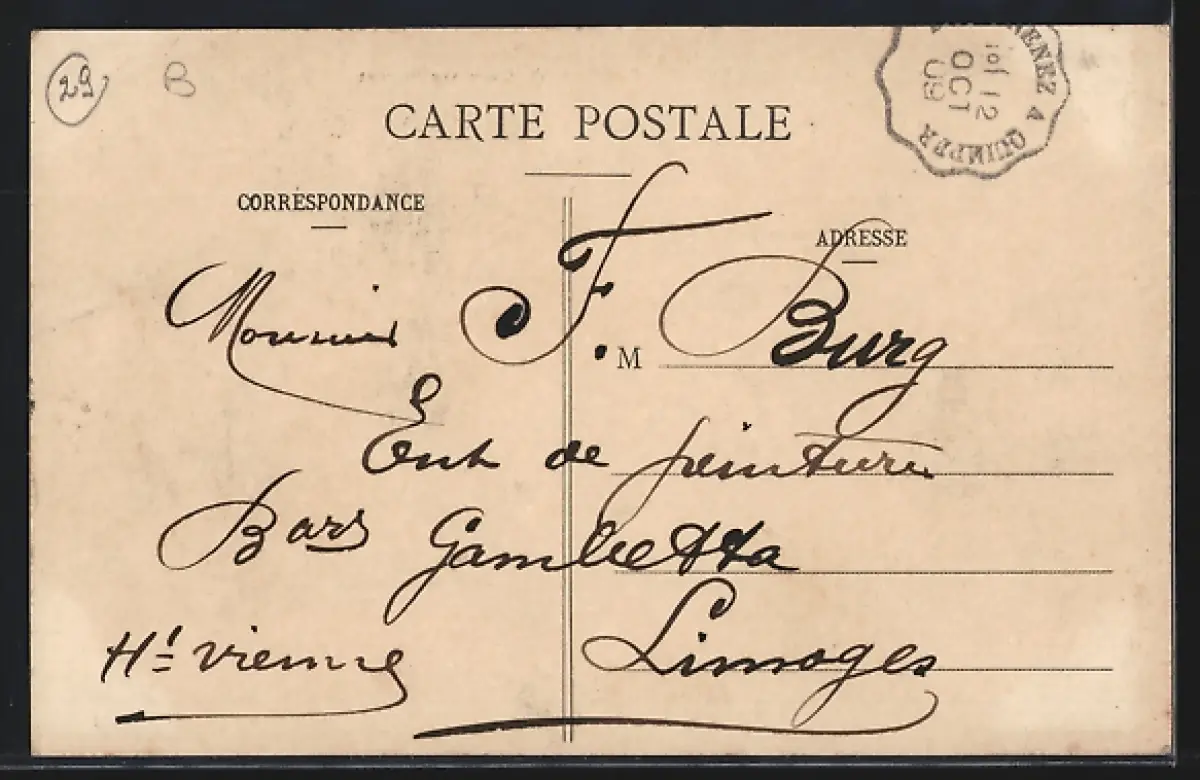 29
B
CARTE POSTALE
NENEZ A QUIMPER
12
OCT
09
CORRESPONDANCE
ADRESSE
Monsieur F. Burg
M
Ent de peinture
Gambetta
Hte Vienne Limoges